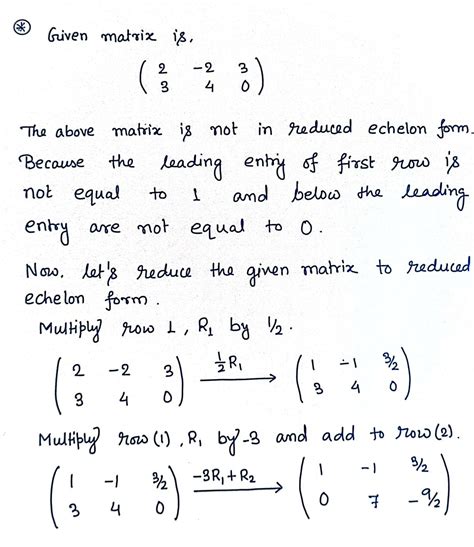 ⊛ Given matrix is,
( 2 -2 3
3 4 0 )
The above matrix is not in reduced echelon form.
Because the leading entry of first row is
not equal to 1 and below the leading
entry are not equal to 0.
Now, let's reduce the given matrix to reduced
echelon form.
Multiply row 1, R₁ by 1/2.
( 2 -2 3
3 4 0 ) ½R₁ → ( 1 -1 3/2
3 4 0 )
Multiply row (1), R₁ by -3 and add to row (2).
( 1 -1 3/2
3 4 0 ) -3R₁+R₂ → ( 1 -1 3/2
0 7 -9/2 )